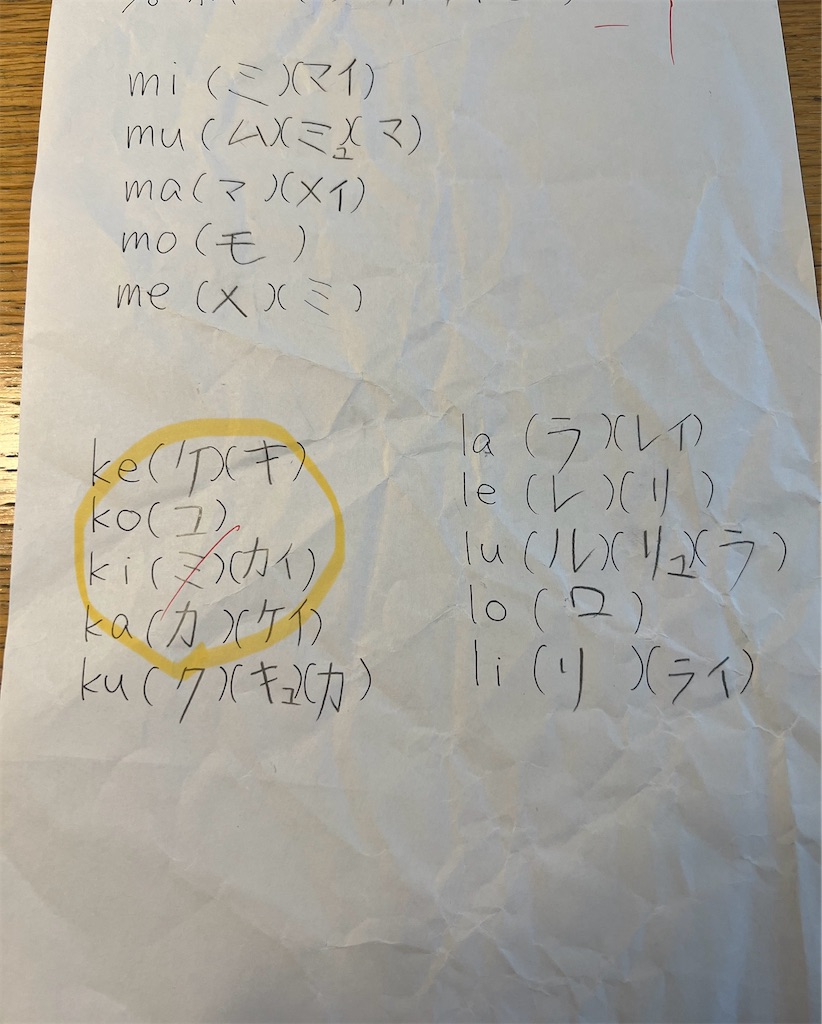 mi (ミ)(マイ)
mu (ム)(ミュ)(マ)
ma (マ)(メイ)
mo (モ)
me (メ)(ミ)
ke (ケ)(キ)
ko (コ)
ki (ミ)(カイ)
ka (カ)(ケイ)
ku (ク)(キュ)(カ)
la (ラ)(レイ)
le (レ)(リ)
lu (ル)(リュ)(ラ)
lo (ロ)
li (リ)(ライ)